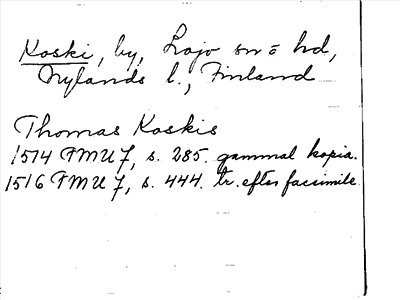 Koski, by, Lojo sn o hd,
Nylands l., Finland
Thomas Koskis
1514 FMU 7, s. 285. gammal kopia.
1516 FMU 7, s. 444. tr. efter facsimile